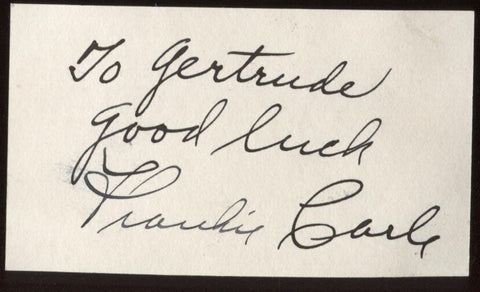 To Gertrude
Good luck
Frankie Carle